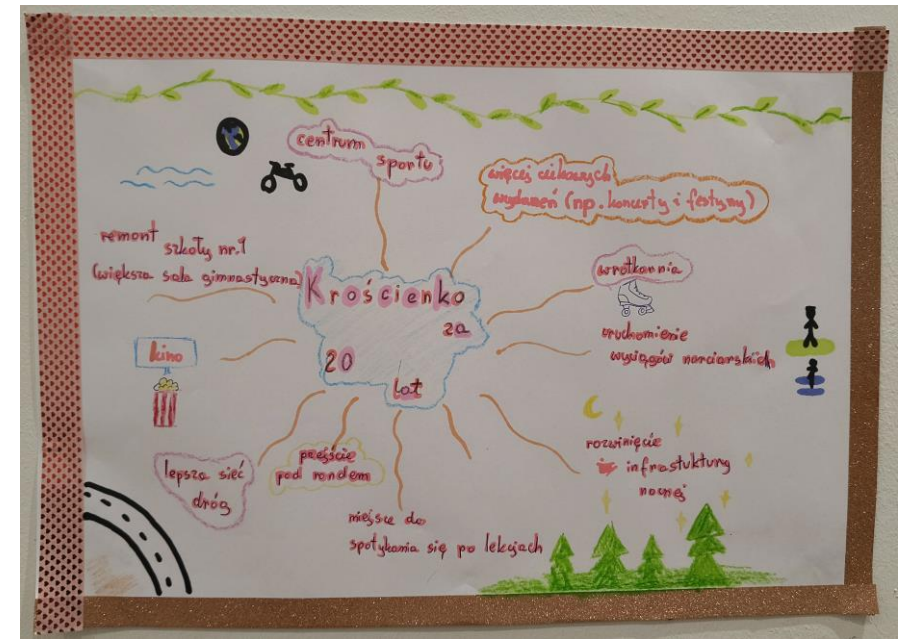 centrum
sportu
więcej ciekawych
wydarzeń (np. koncerty i festyny)
remont
szkoły nr. 1
(większa sala gimnastyczna)
Krościenko
za
20
lat
wrotkarnia
uruchomienie
wyciągów narciarskich
kino
lepsza sieć
dróg
przejście
pod rondem
miejsce do
spotykania się po lekcjach
rozwinięcie
infrastuktury
nocnej